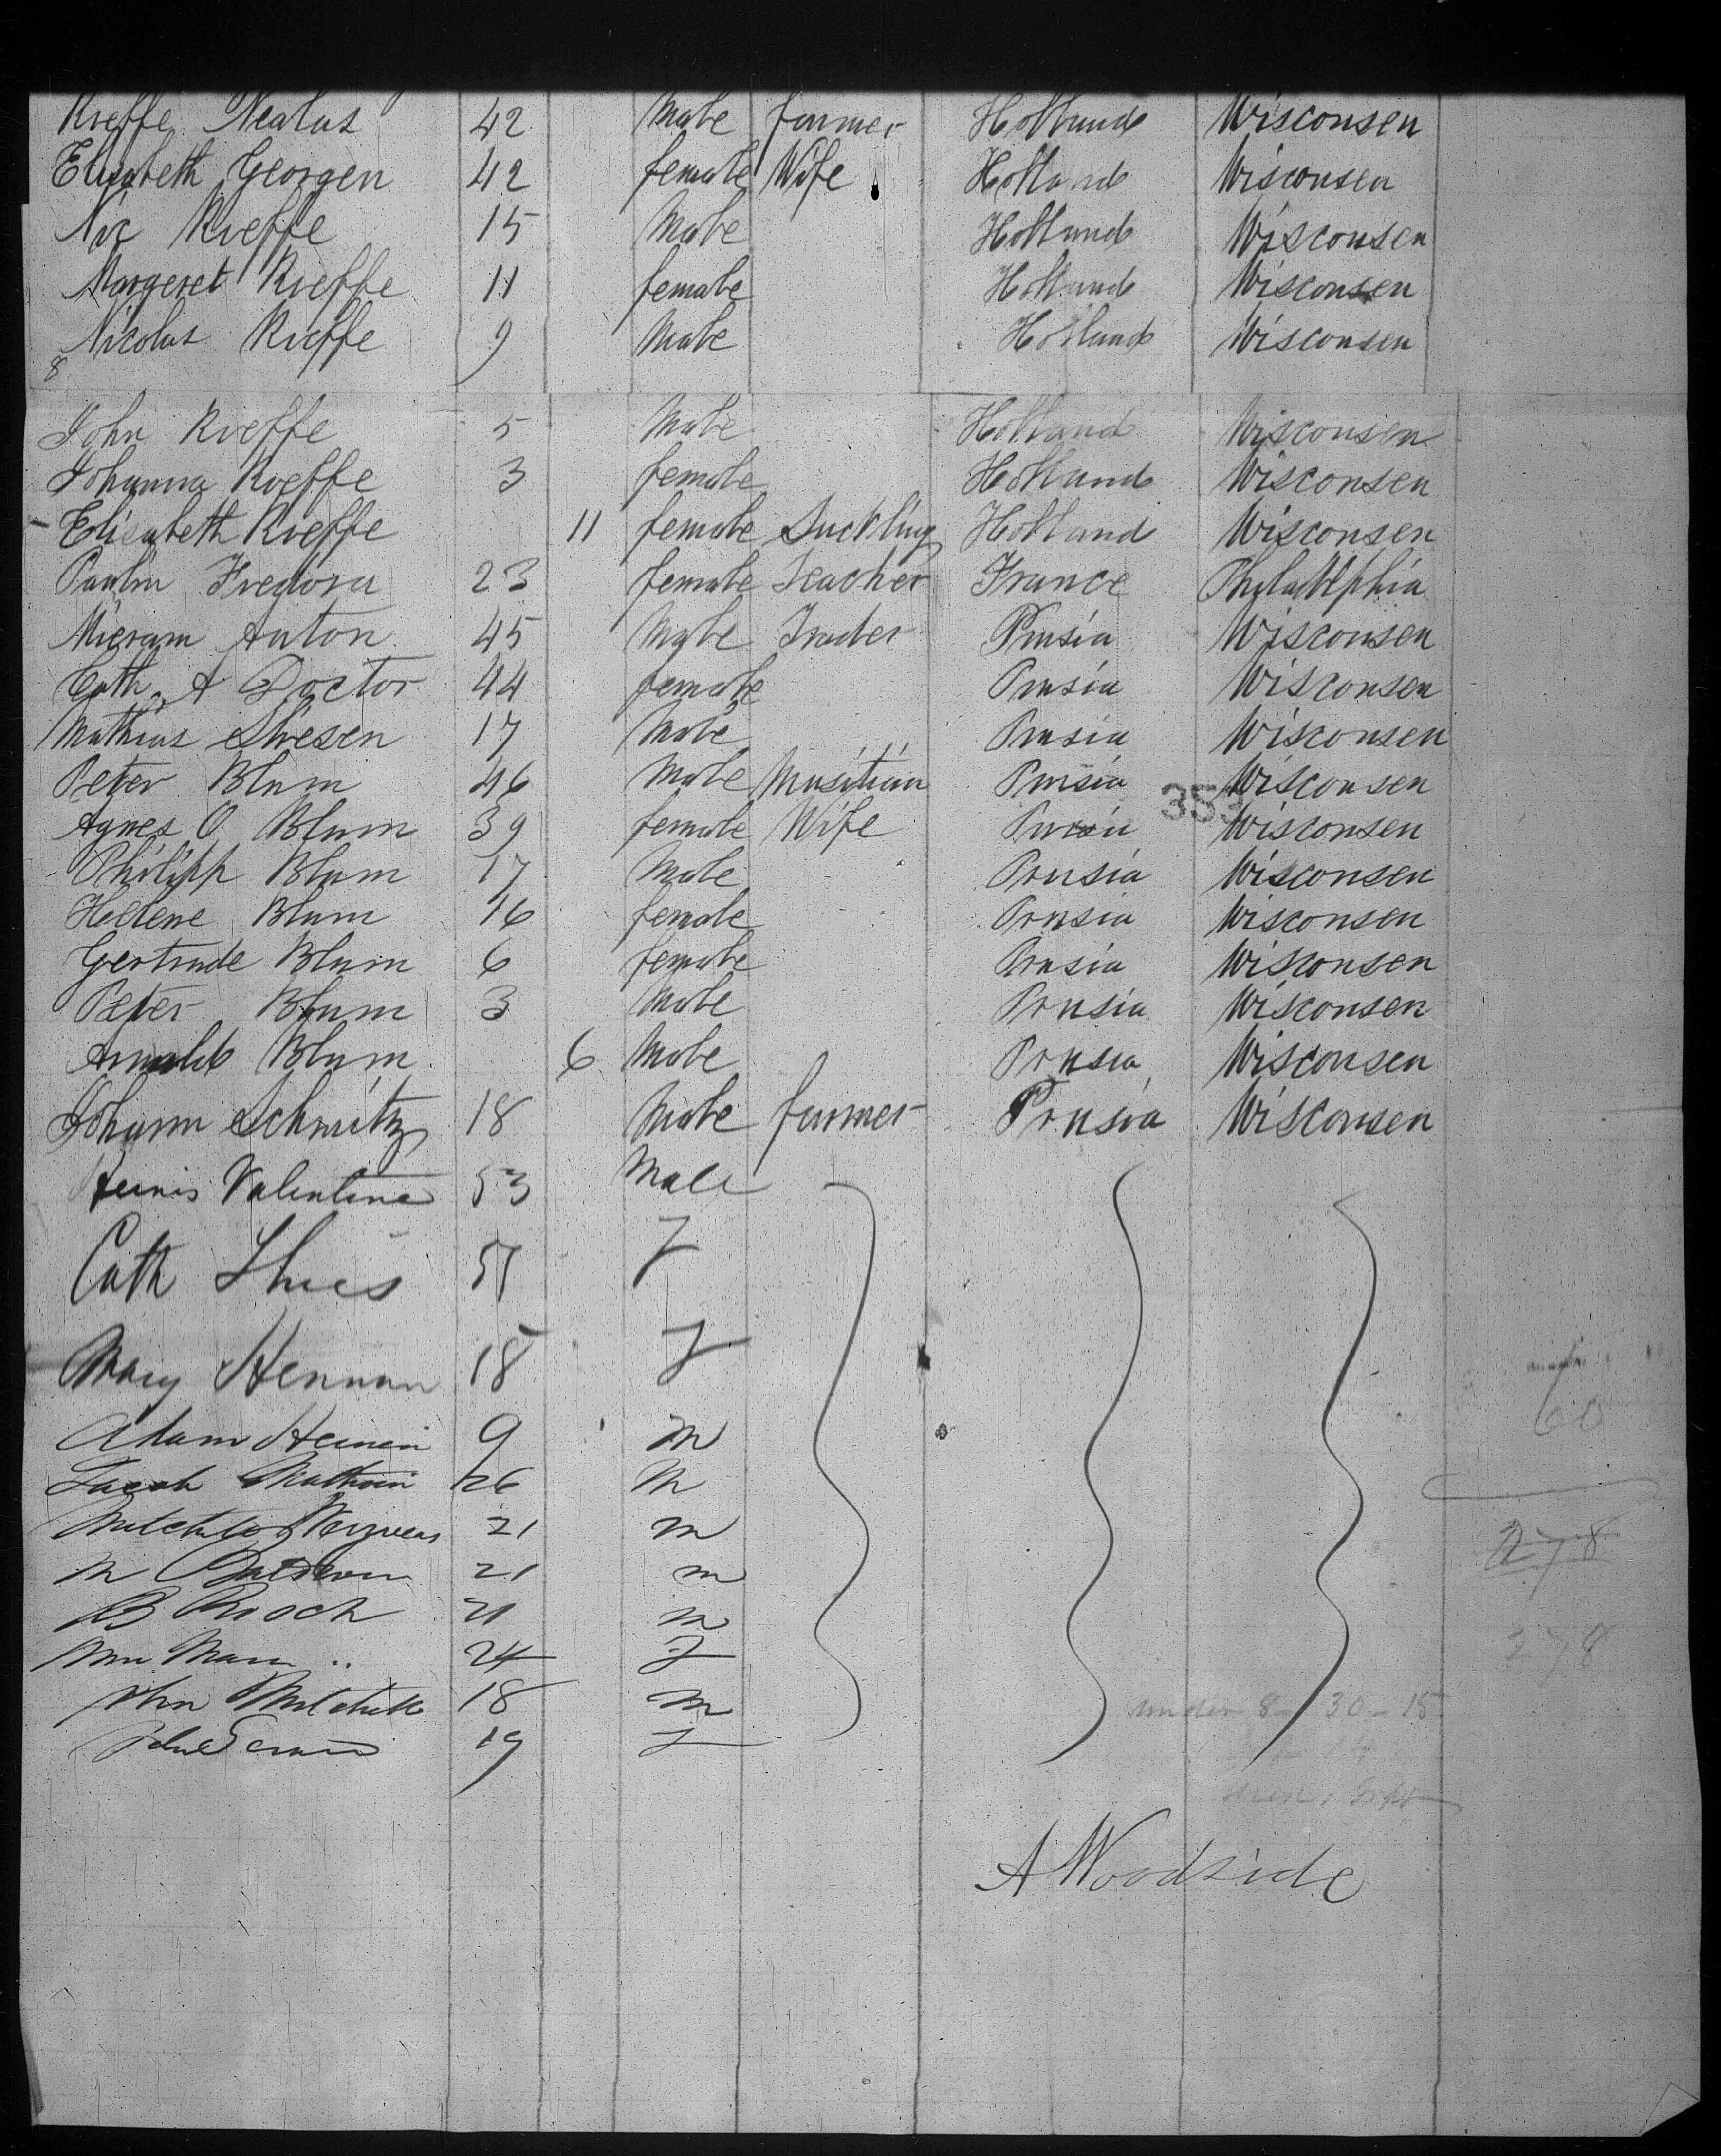 Kieffe Nicolas 42 Male farmer Holland Wisconsen
Elisabeth Georgen 42 female Wife Holland Wisconsen
Nic Kieffe 15 Male Holland Wisconsen
Margeret Kieffe 11 female Holland Wisconsen
Nicolas Kieffe 9 Male Holland Wisconsen
8
John Kieffe 5 Male Holland Wisconsen
Johanna Kieffe 3 female Holland Wisconsen
Elisabeth Kieffe 11 female Suckling Holland Wisconsen
Paulin 23 female Teacher France Philadelphia
Anton 45 Male Trader Prusia Wisconsen
Cath. A Doctor 44 female Prusia Wisconsen
Mathias 17 Male Prusia Wisconsen
Peter Blum 46 Male Musitian Prusia Wisconsen
353
Agnes O Blum 39 female Wife Prusia Wisconsen
Philipp Blum 17 Male Prusia Wisconsen
Helene Blum 16 female Prusia Wisconsen
Gertrude Blum 6 female Prusia Wisconsen
Peter Blum 3 Male Prusia Wisconsen
Arnold Blum 6 Male Prusia Wisconsen
Johann Schmitz 18 Male farmer Prusia Wisconsen
Valentine 53 Male
Cath Thies 51 F
Mary 18 F
Adam 9 m
Jacob 26 m
21 m
m 21 m
B 21 m
Mary .. 24 F
John Mitchell 18 m
19 F
60
278
278
under 8 30 - 15
A Woodside